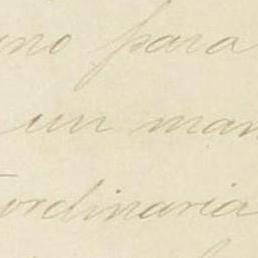 uno para
un man
ordinaria